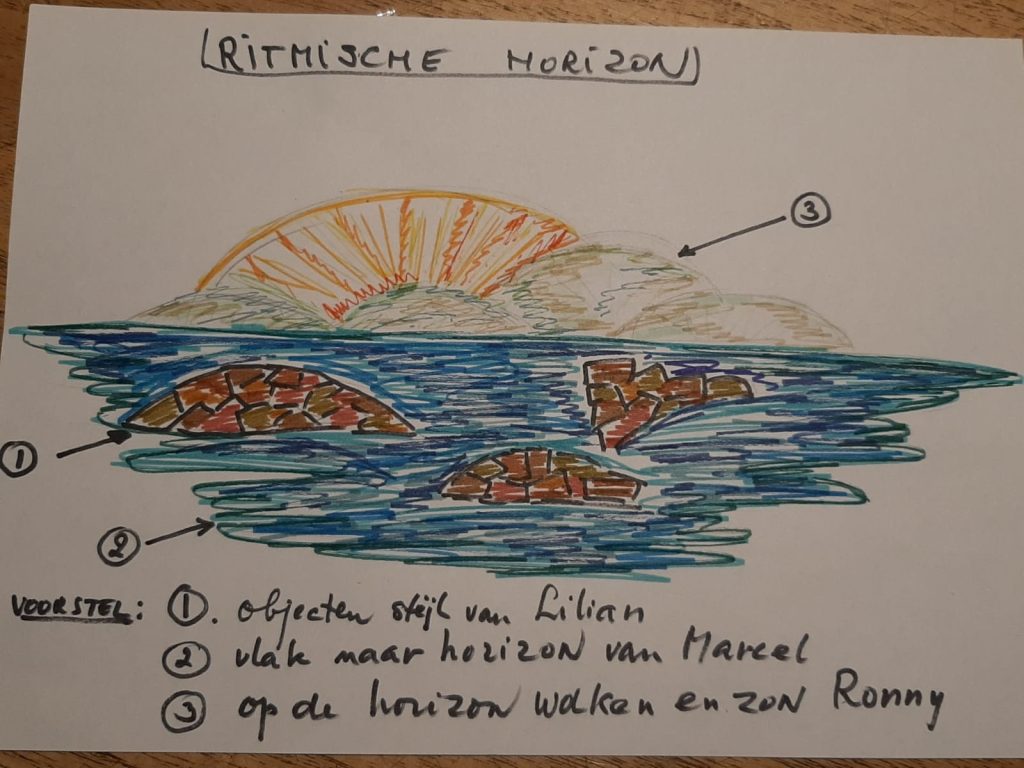 RITMISCHE HORIZON
3
1
2
VOORSTEL: 1. objecten stijl van Lilian
2 vlak naar horizon van Marcel
3 op de horizon wolken en zon Ronny